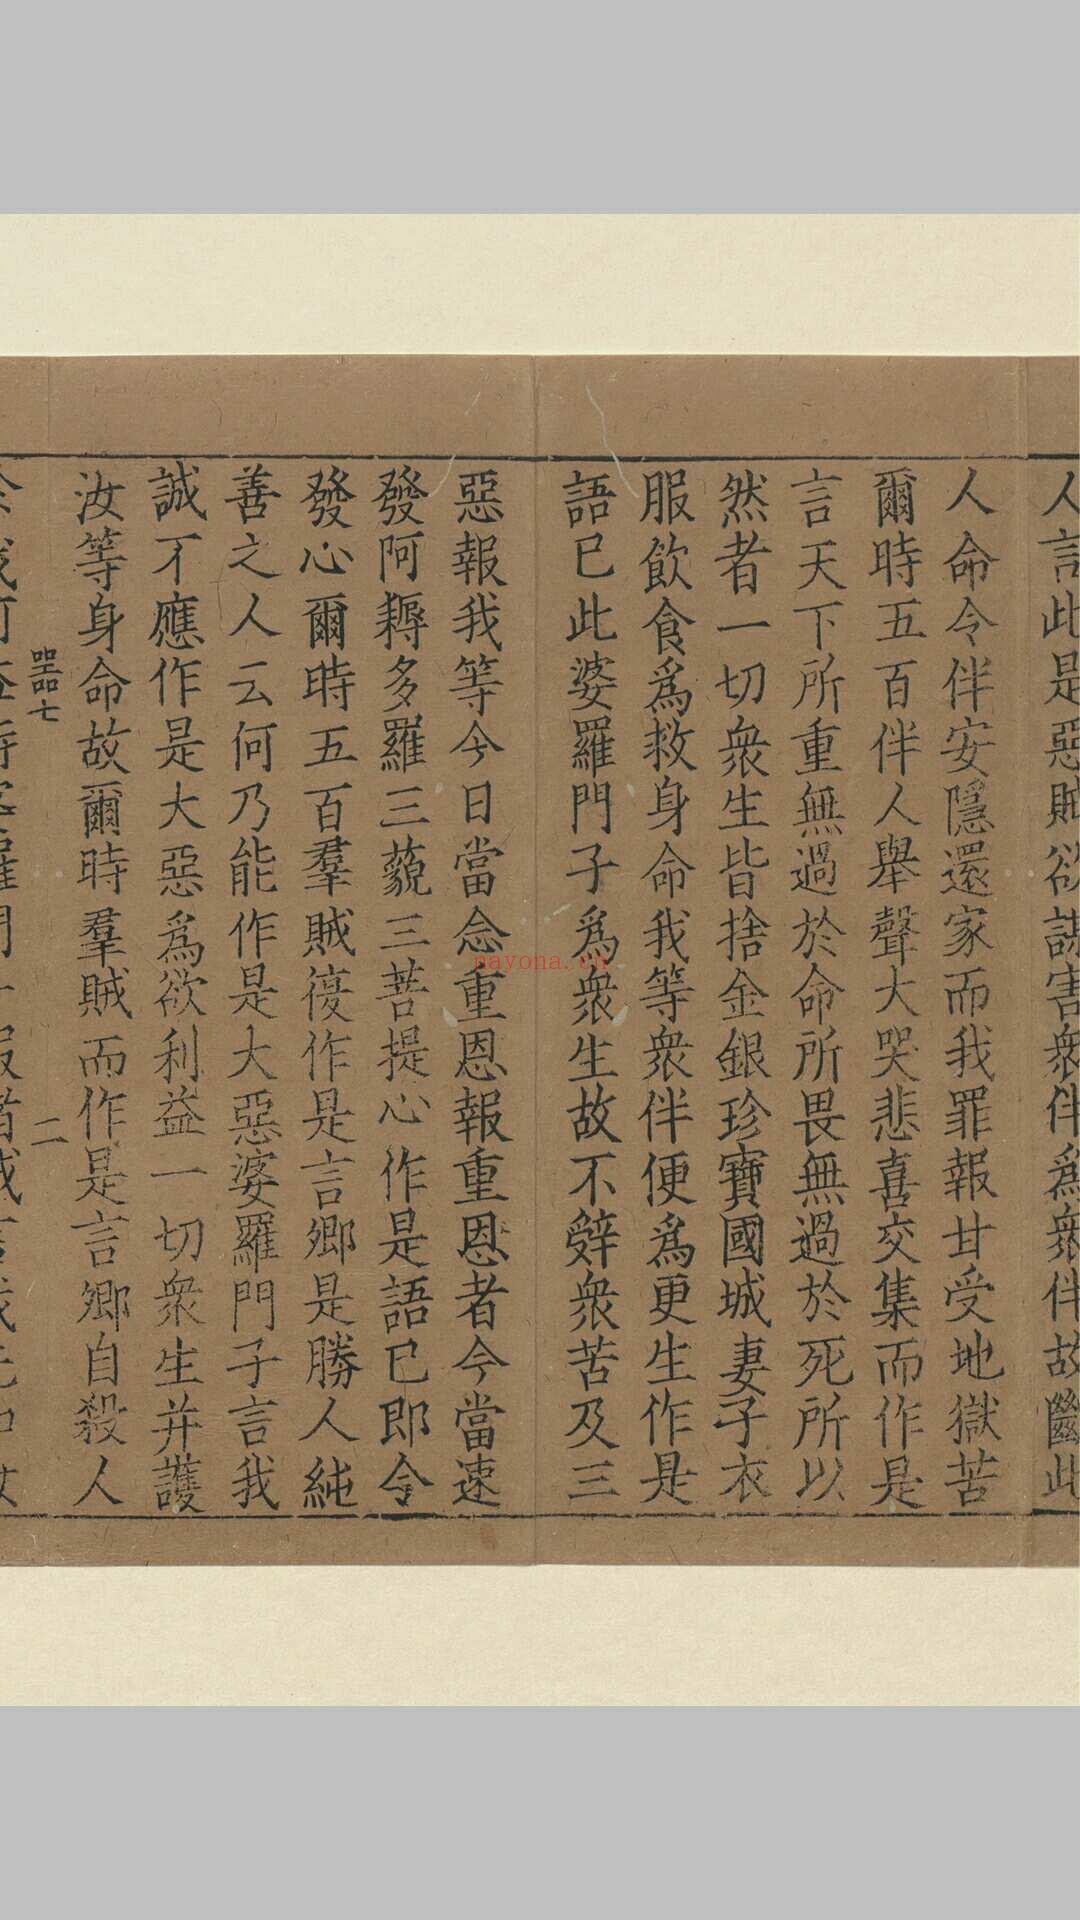 人言此是惡賊欲謀害衆伴爲衆伴故斷此
人命令伴安隱還家而我罪報甘受地獄苦
爾時五百伴人舉聲大哭悲喜交集而作是
言天下所重無過於命所畏無過於死所以
然者一切衆生皆捨金銀珍寶國城妻子衣
服飲食爲救身命我等衆伴便爲更生作是
語已此婆羅門子爲衆生故不辤衆苦及三
惡報我等今日當念重恩報重恩者今當速
發阿耨多羅三藐三菩提心作是語已即令
發心爾時五百羣賊復作是言卿是勝人純
善之人云何乃能作是大惡婆羅門子言我
誠不應作是大惡爲欲利益一切衆生并護
汝等身命故爾時羣賊而作是言卿自殺人
器七
二
nayona.cn